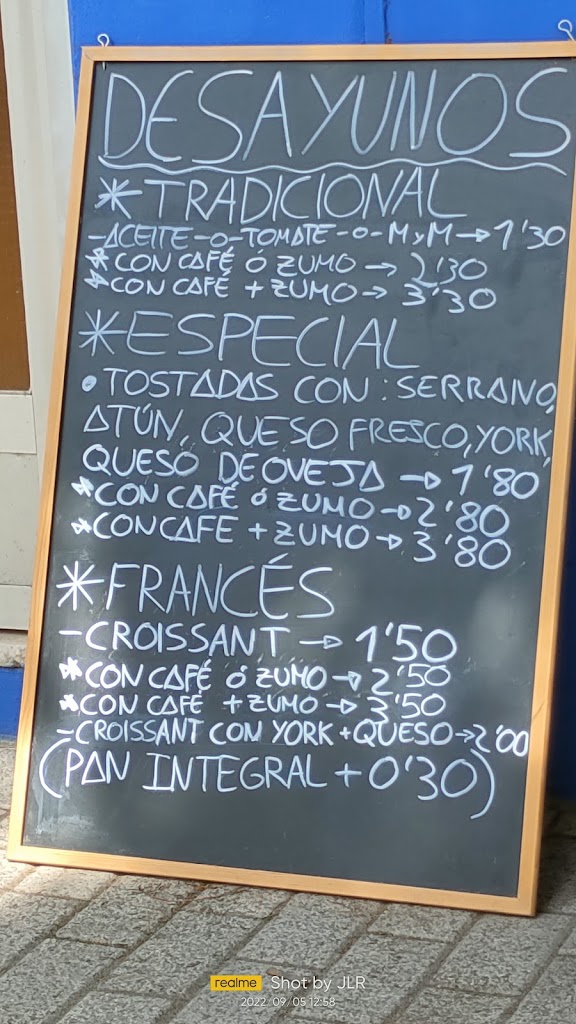 DESAYUNOS
*TRADICIONAL
-ACEITE-o-TOMATE-o-MyM→1'30
*CON CAFÉ Ó ZUMO→2'30
*CON CAFÉ + ZUMO→3'30
*ESPECIAL
•TOSTADAS CON: SERRANO,
ATÚN, QUESO FRESCO, YORK,
QUESO DE OVEJA→1'80
*CON CAFÉ Ó ZUMO→2'80
*CON CAFE + ZUMO→3'80
*FRANCÉS
-CROISSANT→1'50
*CON CAFÉ Ó ZUMO→2'50
*CON CAFÉ + ZUMO→3'50
-CROISSANT CON YORK+QUESO→2'00
(PAN INTEGRAL + 0'30)
realme Shot by JLR
2022.09.05 12:58